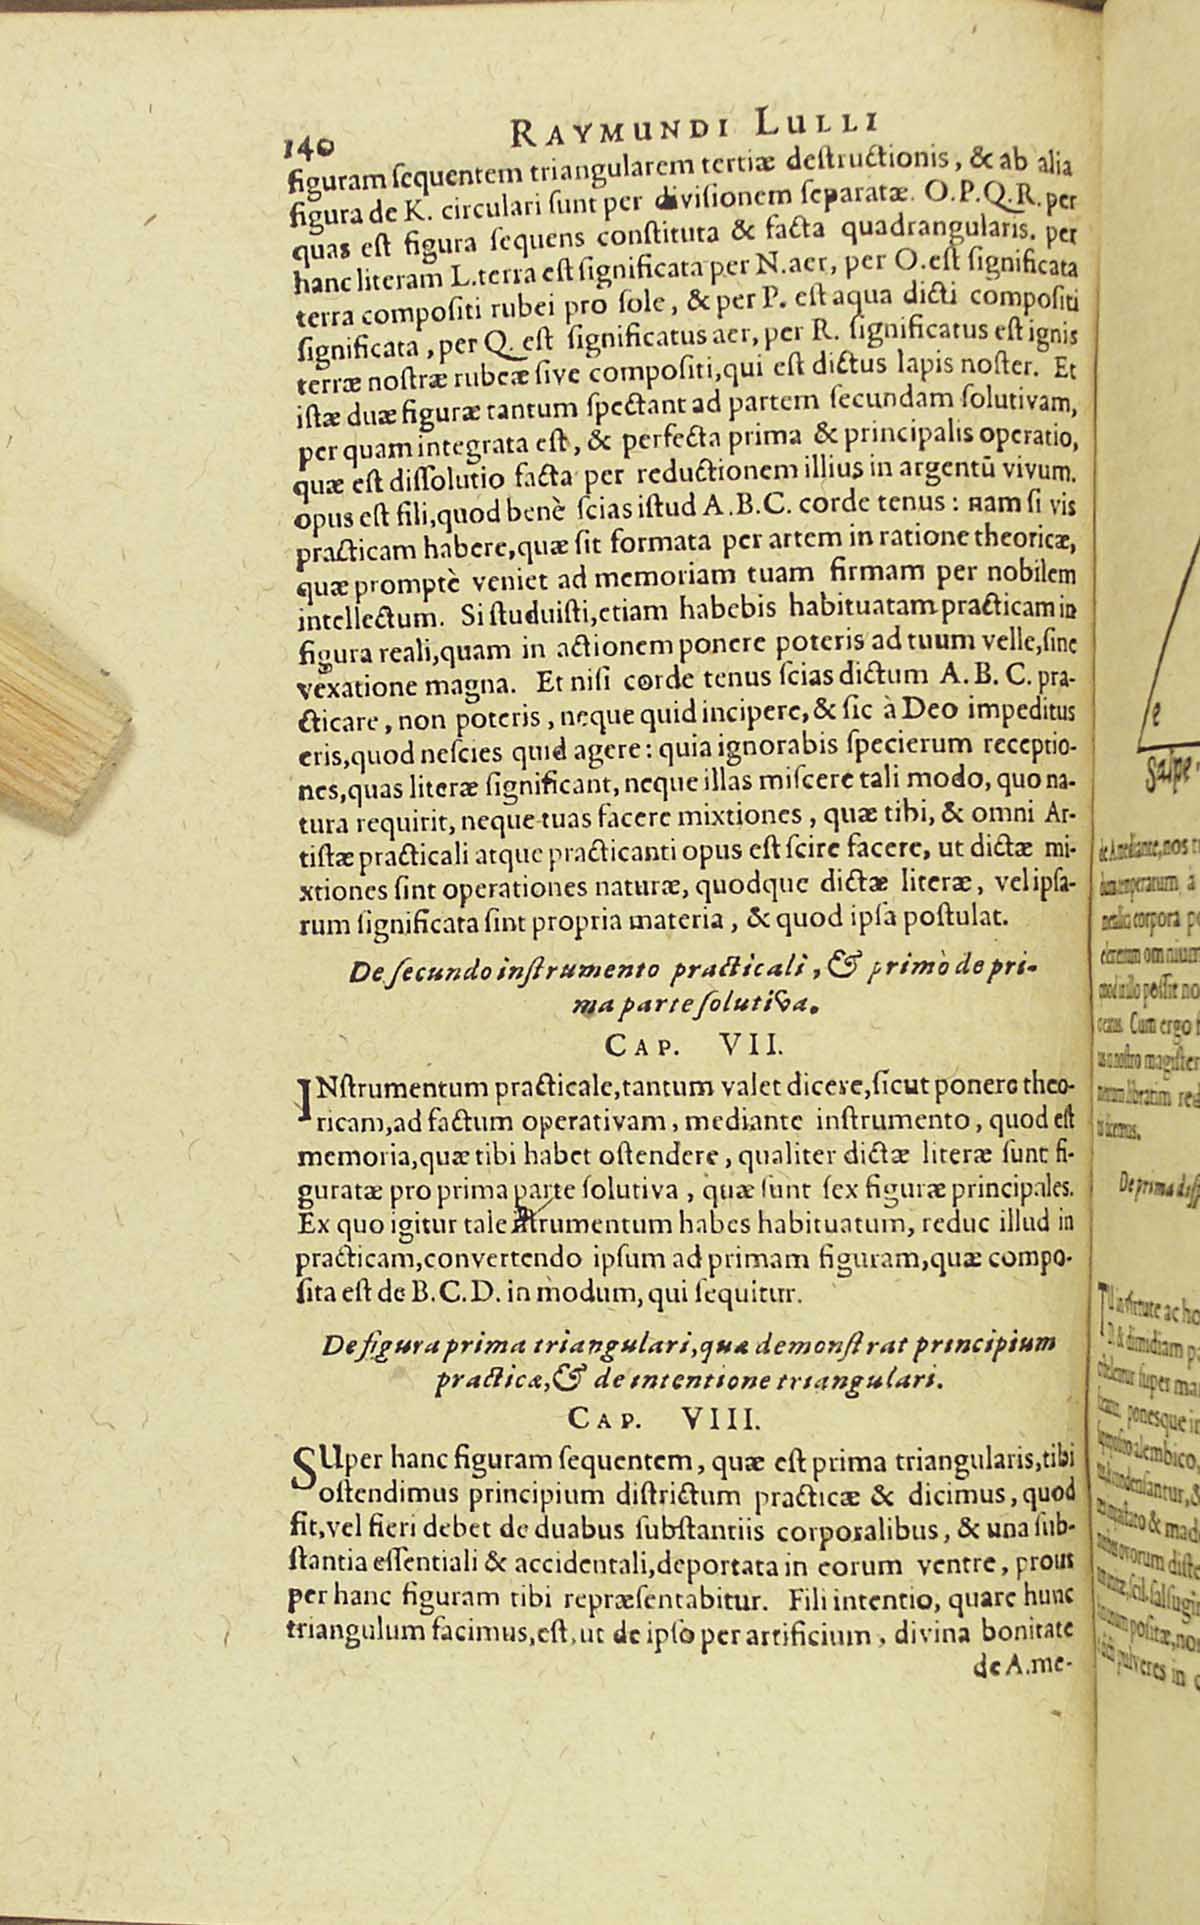 140 RAYMUNDI LULLI
figuram ſequentem triangularem tertiæ deſtructionis, & ab alia
figura de K. circulari ſunt per diviſionem ſeparatæ. O.P.Q.R. per
quas eſt figura ſequens conſtituta & facta quadrangularis. per
hanc literam L. terra eſt ſignificata per N. aer, per O. eſt ſignificata
terra compoſiti rubei pro ſole, & per P. eſt aqua dicti compoſiti
ſignificata, per Q. eſt ſignificatus aer, per R. ſignificatus eſt ignis
terræ noſtræ rubeæ ſive compoſiti, qui eſt dictus lapis noſter. Et
iſtæ duæ figuræ tantum ſpectant ad partem ſecundam ſolutivam,
per quam integrata eſt, & perfecta prima & principalis operatio,
quæ eſt diſſolutio facta per reductionem illius in argentū vivum.
opus eſt fili, quod benè ſcias iſtud A.B.C. corde tenus: nam ſi vis
practicam habere, quæ ſit formata per artem in ratione theoricæ,
quæ promptè veniet ad memoriam tuam firmam per nobilem
intellectum. Si ſtuduiſti, etiam habebis habituatam practicam in
figura reali, quam in actionem ponere poteris ad tuum velle, ſine
vexatione magna. Et niſi corde tenus ſcias dictum A.B.C. pra-
cticare, non poteris, neque quid incipere, & ſic à Deo impeditus
eris, quod neſcies quid agere: quia ignorabis ſpecierum receptio-
nes, quas literæ ſignificant, neque illas miſcere tali modo, quo na-
tura requirit, neque tuas facere mixtiones, quæ tibi, & omni Ar-
tiſtæ practicali atque practicanti opus eſt ſcire facere, ut dictæ mi-
xtiones ſint operationes naturæ, quodque dictæ literæ, vel ipſa-
rum ſignificata ſint propria materia, & quod ipſa poſtulat.
De ſecundo inſtrumento practicali, & primò de pri-
ma parte ſolutiva.
CAP. VII.
INſtrumentum practicale, tantum valet dicere, ſicut ponere theo-
ricam, ad factum operativam, mediante inſtrumento, quod eſt
memoria, quæ tibi habet oſtendere, qualiter dictæ literæ ſunt fi-
guratæ pro prima parte ſolutiva, quæ ſunt ſex figuræ principales.
Ex quo igitur tale inſtrumentum habes habituatum, reduc illud in
practicam, convertendo ipſum ad primam figuram, quæ compo-
ſita eſt de B.C.D. in modum, qui ſequitur.
De figura prima triangulari, quæ demonſtrat principium
practicæ, & de intentione triangulari.
CAP. VIII.
SUper hanc figuram ſequentem, quæ eſt prima triangularis, tibi
oſtendimus principium diſtrictum practicæ & dicimus, quod
fit, vel fieri debet de duabus ſubſtantiis corporalibus, & una ſub-
ſtantia eſſentiali & accidentali, deportata in eorum ventre, prout
per hanc figuram tibi repræſentabitur. Fili intentio, quare hunc
triangulum facimus, eſt, ut de ipſo per artificium, divina bonitate
de A. me-
e
de A mediante, nos
corpora
omnium
poſſit
Cum ergo
noſtro
De prima
ac ho
& dimidiam
ſuper
ponesque
alembico,
& mad
ovorum
pulveres in